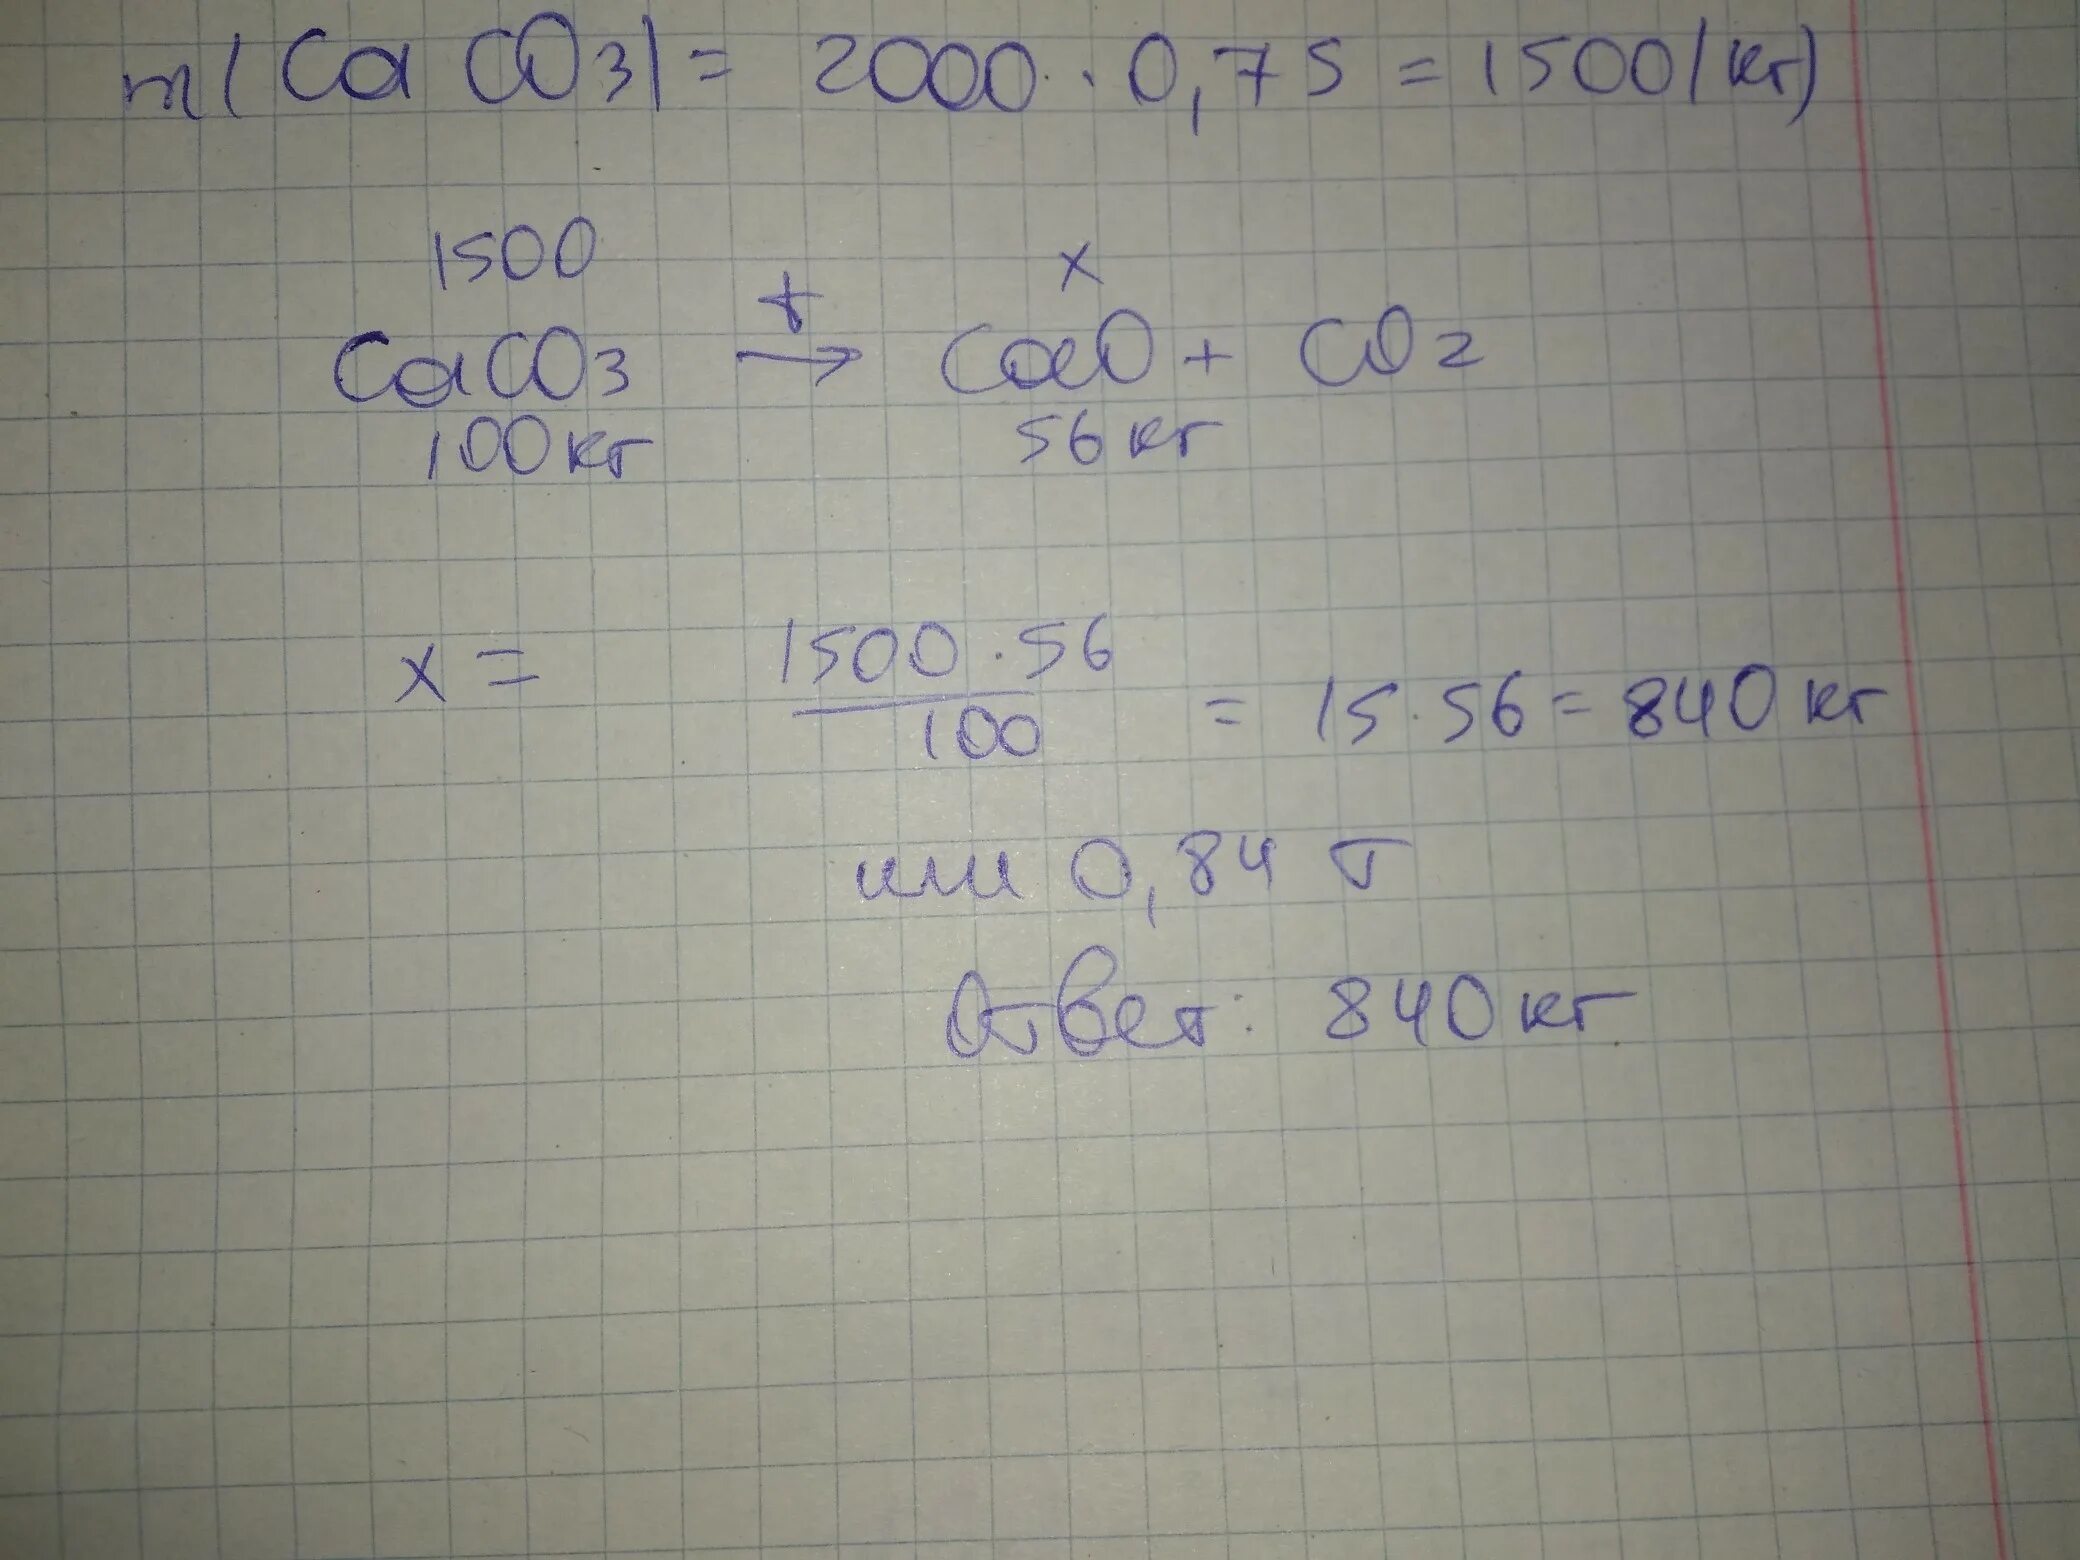 m(CaCO3) = 2000 · 0,75 = 1500 (кг)
1500 x
CaCO3 t→ CaO + CO2
100кг 56кг
x = 1500 · 56 / 100 = 15 · 56 = 840 кг
или 0,84 т
Ответ: 840 кг